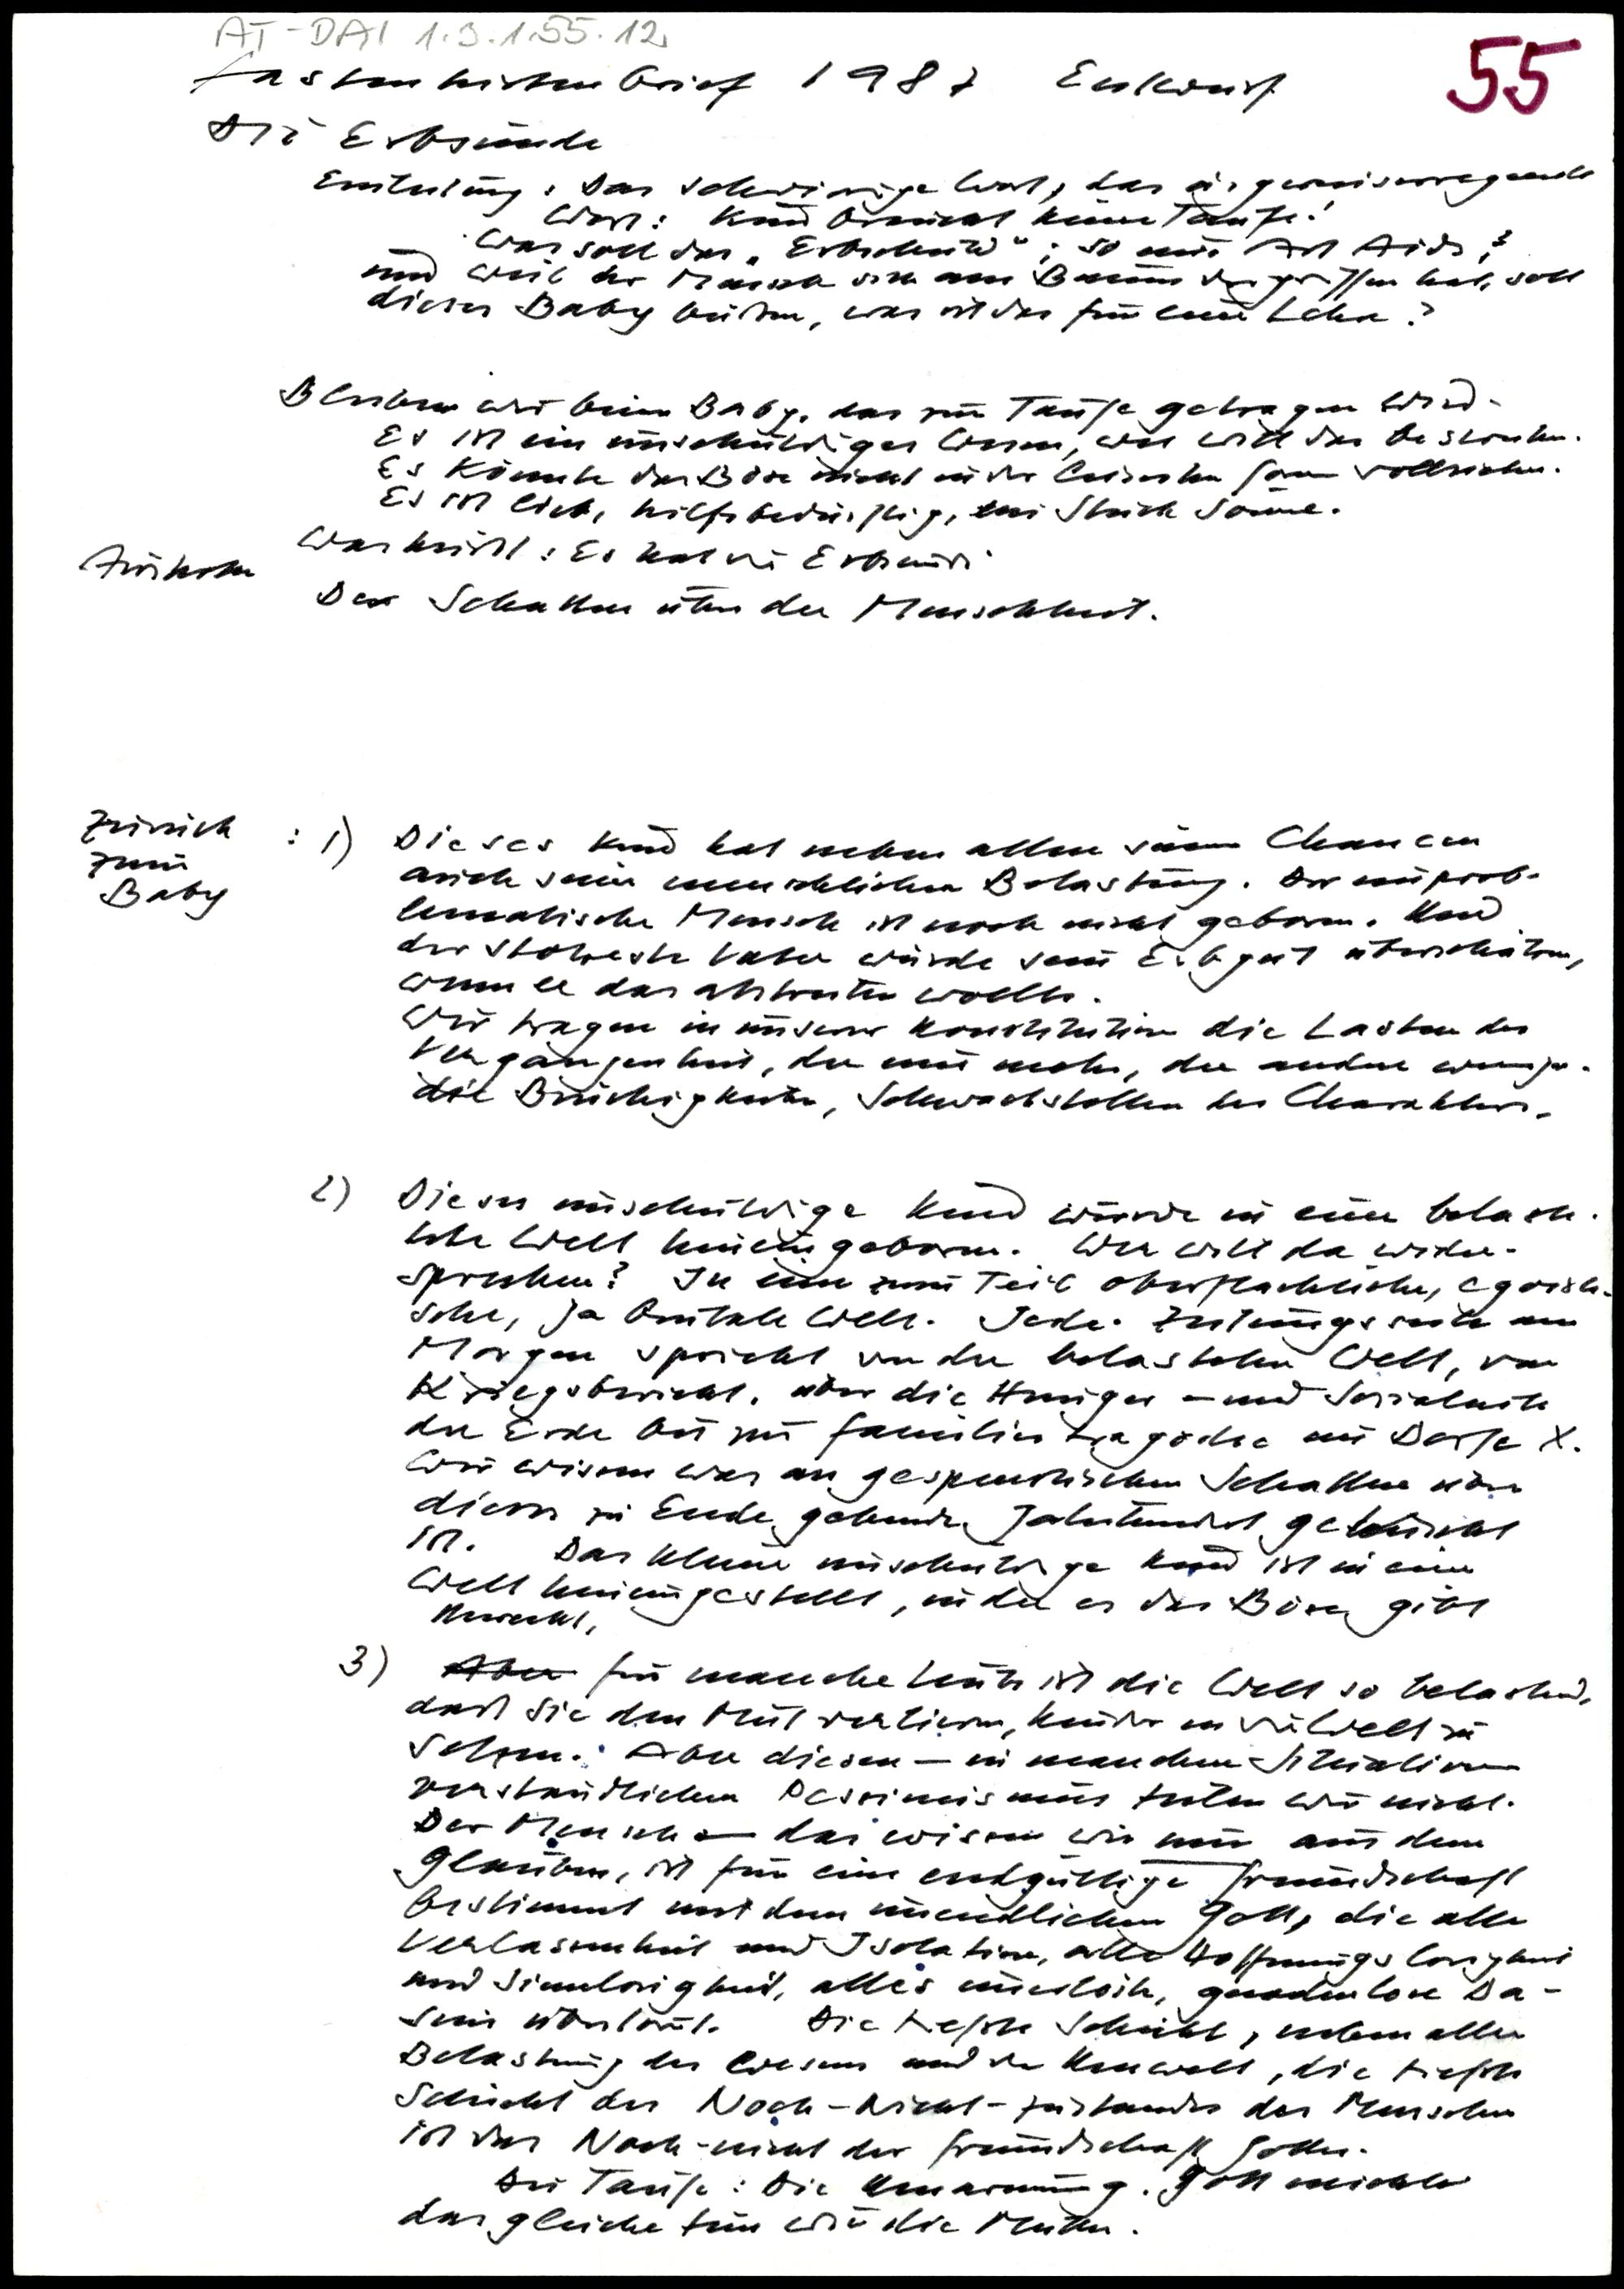 AT-DAI 1.3.1.55.12
55
Fastenhirtenbrief 1987 Entwurf
Die Erbsünde
Einleitung: Das schwierige Wort, das ärgerniserregende
Wort: Kind braucht keine Taufe!
Was soll das „Erbschuld“; so eine Art Aids?
und weil der Mensch sich am Baum vergriffen hat, soll
dieses Baby büßen, was ist das für eine Lehre?
Bleiben wir beim Baby, das zur Taufe getragen wird.
Es ist ein unschuldiges Wesen, wer will das bestreiten.
Es könnte das Böse nicht in der leisesten Form vollziehen.
Es ist lieb, hilfsbedürftig, ein Stück Sonne.
Was heißt: Es hat die Erbsünde
Der Schatten über der Menschheit.
Zurück
zum
Baby
: 1) Dieses Kind hat neben allen seinen Chancen
auch seine menschlichen Belastung. Der unprob-
lematische Mensch ist noch nicht geboren. Und
der stolzeste Vater würde sein Erbgut überschätzen,
wenn er das abstreiten wollte.
Wir tragen in unserer Konstitution die Lasten der
Vergangenheit, der eine mehr, der andere weniger.
die Brüchigkeiten, Schwachstellen des Charakters.
2) Dieses unschuldige Kind wurde in eine belaste-
te Welt hineingeboren. Wer will da wider-
sprechen? In eine zum Teil oberflächliche, egoisti-
sche, ja brutale Welt. Jede Zeitungsseite am
Morgen spricht von der belasteten Welt, vom
Kriegsbericht, über die Hunger- und Sozialnöte
der Erde bis zur Familientragödie im Dorfe X.
Wir wissen was an gespenstischen Schatten über
dieses zu Ende gehende Jahrhundert gehuscht
ist. Das kleine unschuldige Kind ist in eine
Welt hineingestellt, in der es das Böse gibt
3) Aber für manche Leute ist die Welt so belastend,
daß sie den Mut verlieren, Kinder in die Welt zu
setzen. Aber diesen – in manchen Situationen
verständlichen Pessimismus teilen wir nicht.
Der Mensch – das wissen wir nur aus dem
Glauben, ist für eine endgültige Freundschaft
bestimmt mit dem unendlichen Gott, die alle
Verlassenheit und Isolation, alle Hoffnungslosigkeit
und Sinnlosigkeit, alles unerlöste, gnadenlose Da-
sein überlebt. Die tiefste Schicht, neben aller
Belastung des Wesens und der Umwelt, die tiefste
Schicht des Noch-Nicht-Zustandes des Menschen
ist das Noch-nicht der Freundschaft Gottes.
Die Taufe: Die Umarmung. Gott möchte
das gleiche tun wie die Mutter.